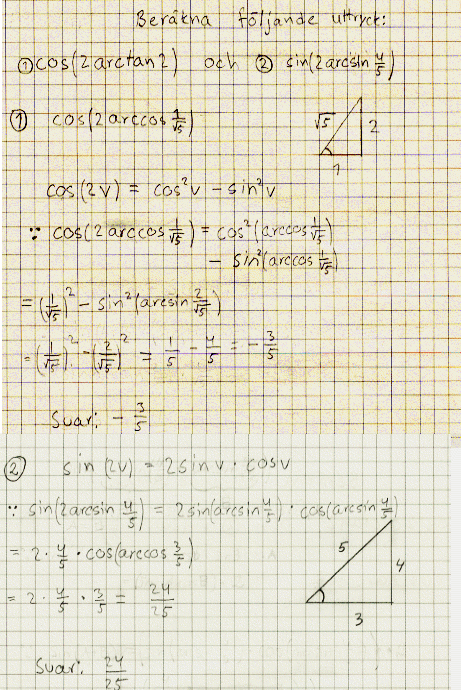 Beräkna följande uttryck:
① cos(2 arctan 2) och ② sin(2 arcsin 4/5)
① cos(2 arccos 1/√5)
√5
2
1
cos(2v) = cos²v - sin²v
∵ cos(2 arccos 1/√5) = cos²(arccos 1/√5)
- sin²(arccos 1/√5)
= (1/√5)² - sin²(arcsin 2/√5)
= (1/√5)² - (2/√5)² = 1/5 - 4/5 = - 3/5
Svar: - 3/5
② sin(2v) = 2 sin v · cos v
∵ sin(2 arcsin 4/5) = 2 sin(arcsin 4/5) · cos(arcsin 4/5)
= 2 · 4/5 · cos(arccos 3/5)
5
4
= 2 · 4/5 · 3/5 = 24/25
3
Svar: 24/25